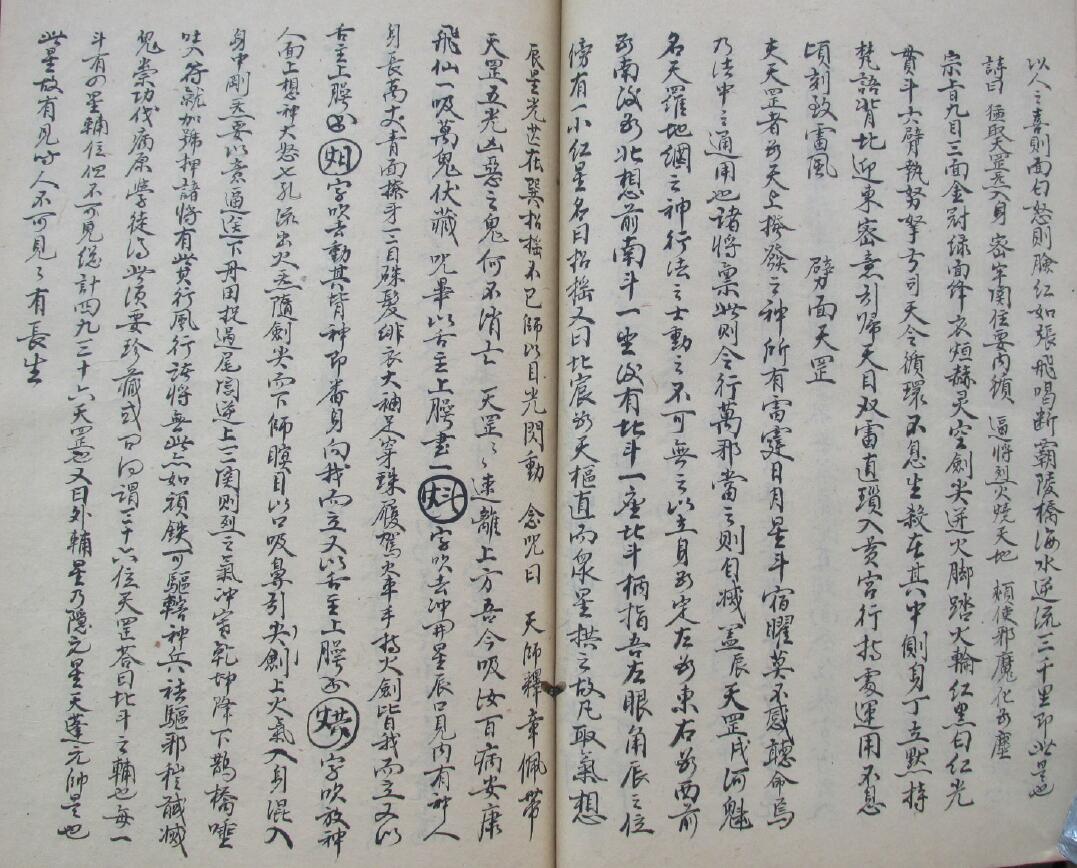 以人之喜則面白怒則臉紅如張飛喝断霸陵橋海水逆流三千里即此是也
詩曰 獨取天罡炁入身 密牢関住要内鎖 逼將烈火燒天地 頼使邪魔化為塵
宗百九目三面金冠緑面绛衣烜赫灵空劍尖迸火脚踏火輪紅黑白紅光
貫斗六臂執弩擎 司天令循環不息生殺在其中側身丁立黙持
梵語背北迎東密意引歸天目双雷直瑣入黄宫行持處運用不息
頃刻致雷風  劈面天罡
夫天罡者為天上撥發之神所有雷霆日月星斗宿曜莫不感聽命焉
乃法中之通用也諸將禀此則令行萬邪當之則自滅盖辰天罡戌河魁
名天羅地網之神行法之士動之不可無之以立身為定左為東右為西前
為南後為北想前南斗一坐後有北斗一座北斗柄指吾左眼角辰之位
傍有一小紅星名曰招摇又曰北宸為天樞直而衆星拱之故凡取氣想
辰星光芒在巽招摇不已師以目光閃動 念咒曰 天師釋章佩帶
天罡五光凶惡之鬼何不消亡 天罡々速離上方吾今吸汝百病安康
飛仙一吸萬鬼伏藏 咒畢以舌主上腭書一 字吹去冲開星辰口見内有神人
身長萬丈青面獠牙三目硃髮緋衣大袖足穿硃履駕火車手持火劍背我而立又以
舌主上腭 字吹去動其背神即番身向我而立又以舌主上腭 字吹放神
人面上想神大怒七孔流出火炁隨劍尖而下師瞑目以口吸鼻引尖劍上火氣入身混入
身中剛炁要以意逼送下丹田提過尾閭逆上三関則烈之氣冲宵乾坤降下鵲橋唾
吐入符就加號押諸將有此莫行風行諸將無此亦如頑鉄可驅轄神兵袪驅邪 誠滅
鬼祟功伐病原學徒得此須要珍藏或问曰謂三十六位天罡荅曰北斗之輔也每一
斗有四星輔位但不可見總計四九三十六天罡也又曰外輔星乃隱元星天蓬元帥是也
此星故有見 人不可見々有長生